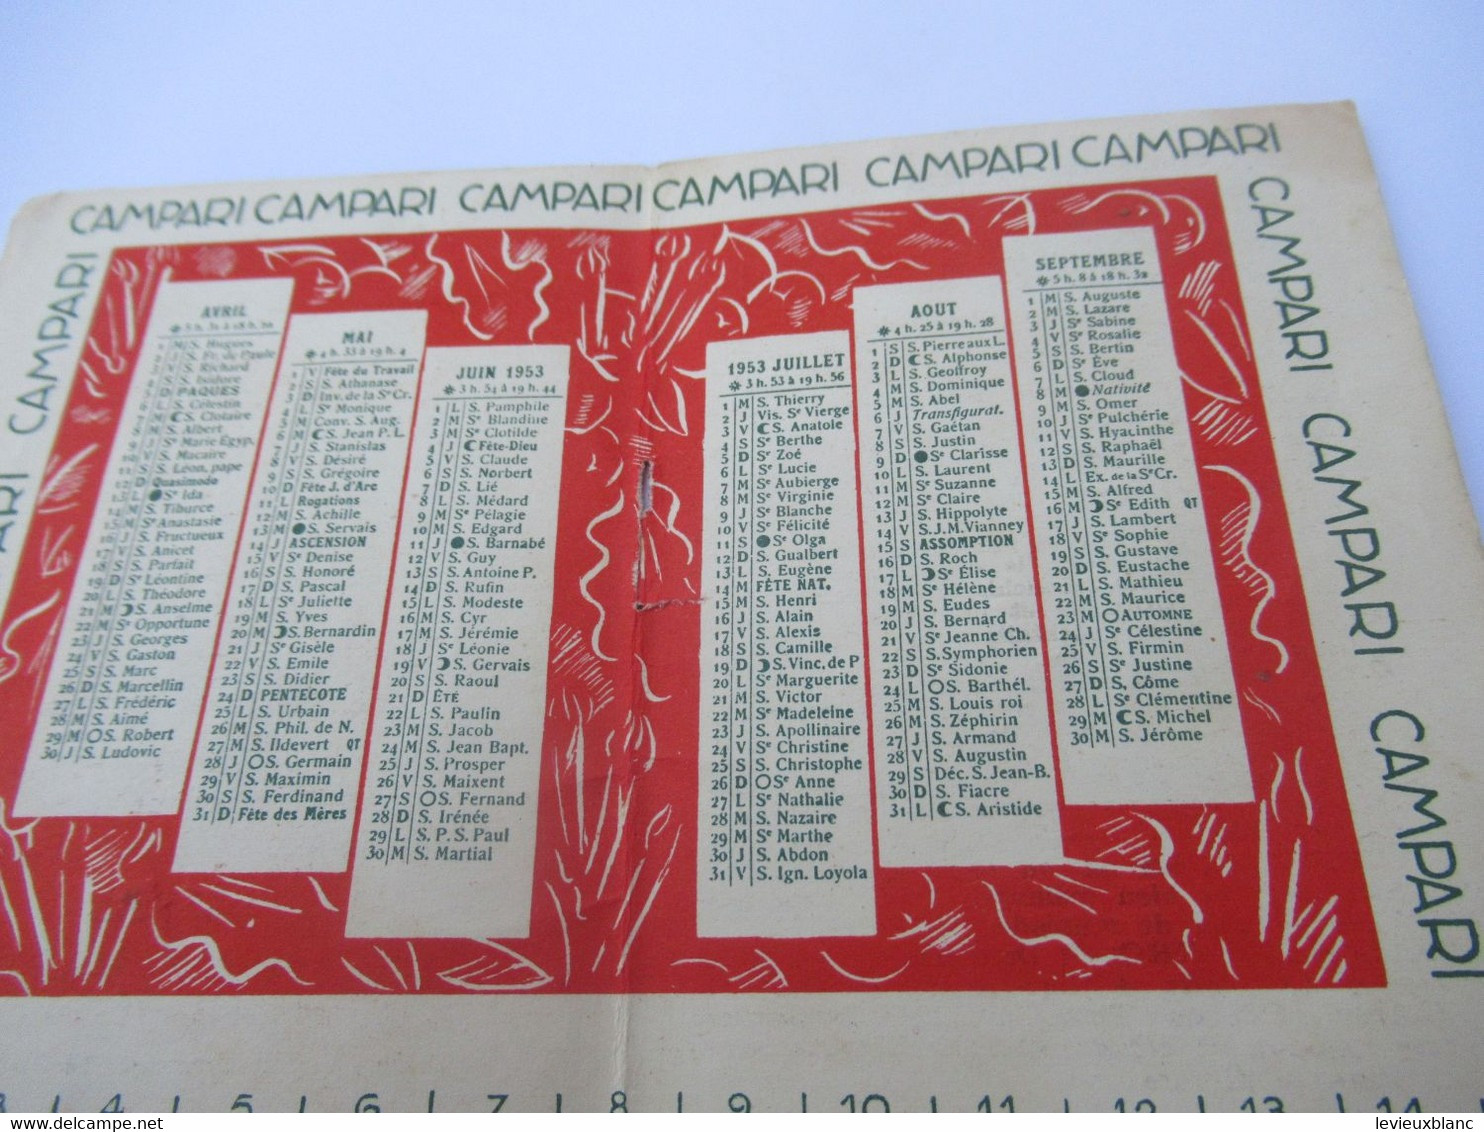 CAMPARI CAMPARI CAMPARI CAMPARI CAMPARI CAMPARI
CAMPARI
CAMPARI
CAMPARI
CAMPARI
CAMPARI
AVRIL
1 M S. Hugues
2 J S. Fr. de Paule
3 V S. Richard
4 S S. Isidore
5 D PAQUES
6 L S. Célestin
7 M S. Clotaire
8 M S. Albert
9 J Sᵉ Marie Égyp.
10 V S. Macaire
11 S S. Léon, pape
12 D Quasimodo
13 L Sᵉ Ida
14 M S. Tiburce
15 M Sᵉ Anastasie
16 J S. Fructueux
17 V S. Anicet
18 S S. Parfait
19 D Sᵉ Léontine
20 L S. Théodore
21 M S. Anselme
22 M Sᵉ Opportune
23 J S. Georges
24 V S. Gaston
25 S S. Marc
26 D S. Marcellin
27 L S. Frédéric
28 M S. Aimé
29 M S. Robert
30 J S. Ludovic
MAI
4 h. 33 à 19 h. 4
1 V Fête du Travail
2 S S. Athanase
3 D Inv. de la Sᵉ Cr.
4 L Sᵉ Monique
5 M Conv. S. Aug.
6 M S. Jean P. L.
7 J S. Stanislas
8 V S. Désiré
9 S S. Grégoire
10 D Fête J. d'Arc
11 L Rogations
12 M S. Achille
13 M S. Servais
14 J ASCENSION
15 V Sᵉ Denise
16 S S. Honoré
17 D S. Pascal
18 L Sᵉ Juliette
19 M S. Yves
20 M S. Bernardin
21 J Sᵉ Gisèle
22 V S. Emile
23 S S. Didier
24 D PENTECOTE
25 L S. Urbain
26 M S. Phil. de N.
27 M S. Ildevert QT
28 J S. Germain
29 V S. Maximin
30 S S. Ferdinand
31 D Fête des Mères
JUIN 1953
3 h. 54 à 19 h. 44
1 L S. Pamphile
2 M Sᵉ Blandine
3 M Sᵉ Clotilde
4 J Fête-Dieu
5 V S. Claude
6 S S. Norbert
7 D S. Lié
8 L S. Médard
9 M Sᵉ Pélagie
10 M S. Edgard
11 J S. Barnabé
12 V S. Guy
13 S S. Antoine P.
14 D S. Rufin
15 L S. Modeste
16 M S. Cyr
17 M S. Jérémie
18 J Sᵉ Léonie
19 V S. Gervais
20 S S. Raoul
21 D ÉTÉ
22 L S. Paulin
23 M S. Jacob
24 M S. Jean Bapt.
25 J S. Prosper
26 V S. Maixent
27 S S. Fernand
28 D S. Irénée
29 L S. P. S. Paul
30 M S. Martial
1953 JUILLET
3 h. 53 à 19 h. 56
1 M S. Thierry
2 J Vis. Sᵉ Vierge
3 V S. Anatole
4 S Sᵉ Berthe
5 D Sᵉ Zoé
6 L Sᵉ Lucie
7 M Sᵉ Aubierge
8 M Sᵉ Virginie
9 J Sᵉ Blanche
10 V Sᵉ Félicité
11 S Sᵉ Olga
12 D S. Gualbert
13 L S. Eugène
14 M FÊTE NAT.
15 M S. Henri
16 J S. Alain
17 V S. Alexis
18 S S. Camille
19 D S. Vinc. de P
20 L Sᵉ Marguerite
21 M S. Victor
22 M Sᵉ Madeleine
23 J S. Apollinaire
24 V Sᵉ Christine
25 S S. Christophe
26 D Sᵉ Anne
27 L Sᵉ Nathalie
28 M S. Nazaire
29 M Sᵉ Marthe
30 J S. Abdon
31 V S. Ign. Loyola
AOUT
4 h. 25 à 19 h. 28
1 S S. Pierre aux L.
2 D S. Alphonse
3 L S. Geoffroy
4 M S. Dominique
5 M S. Abel
6 J Transfigurat.
7 V S. Gaëtan
8 S S. Justin
9 D Sᵉ Clarisse
10 L S. Laurent
11 M Sᵉ Suzanne
12 M Sᵉ Claire
13 J S. Hippolyte
14 V S. J. M. Vianney
15 S ASSOMPTION
16 D S. Roch
17 L Sᵉ Élise
18 M Sᵉ Hélène
19 M S. Eudes
20 J S. Bernard
21 V Sᵉ Jeanne Ch.
22 S S. Symphorien
23 D Sᵉ Sidonie
24 L S. Barthél.
25 M S. Louis roi
26 M S. Zéphirin
27 J S. Armand
28 V S. Augustin
29 S Déc. S. Jean-B.
30 D S. Fiacre
31 L S. Aristide
SEPTEMBRE
5 h. 8 à 18 h. 32
1 M S. Auguste
2 M S. Lazare
3 J Sᵉ Sabine
4 V Sᵉ Rosalie
5 S S. Bertin
6 D Sᵉ Ève
7 L S. Cloud
8 M Nativité
9 M S. Omer
10 J Sᵉ Pulchérie
11 V S. Hyacinthe
12 S S. Raphaël
13 D S. Maurille
14 L Ex. de la Sᵉ Cr.
15 M S. Alfred
16 M Sᵉ Edith QT
17 J S. Lambert
18 V Sᵉ Sophie
19 S S. Gustave
20 D S. Eustache
21 L S. Mathieu
22 M S. Maurice
23 M AUTOMNE
24 J Sᵉ Célestine
25 V S. Firmin
26 S Sᵉ Justine
27 D S. Côme
28 L Sᵉ Clémentine
29 M S. Michel
30 M S. Jérôme
3 4 5 6 7 8 9 10 11 12 13 14
levieuxblanc